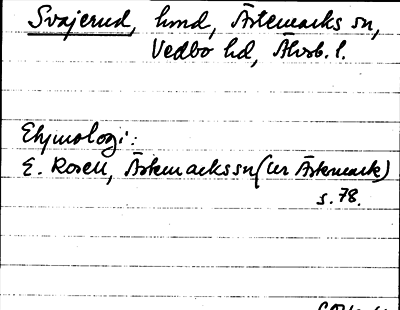 Svajerud, hmd, Ärtemarks sn,
Vedbo hd, Älvsb. l.
Etymologi:
E. Rosell, Ärtemarks sn (ur Ärtemark)
s. 78.